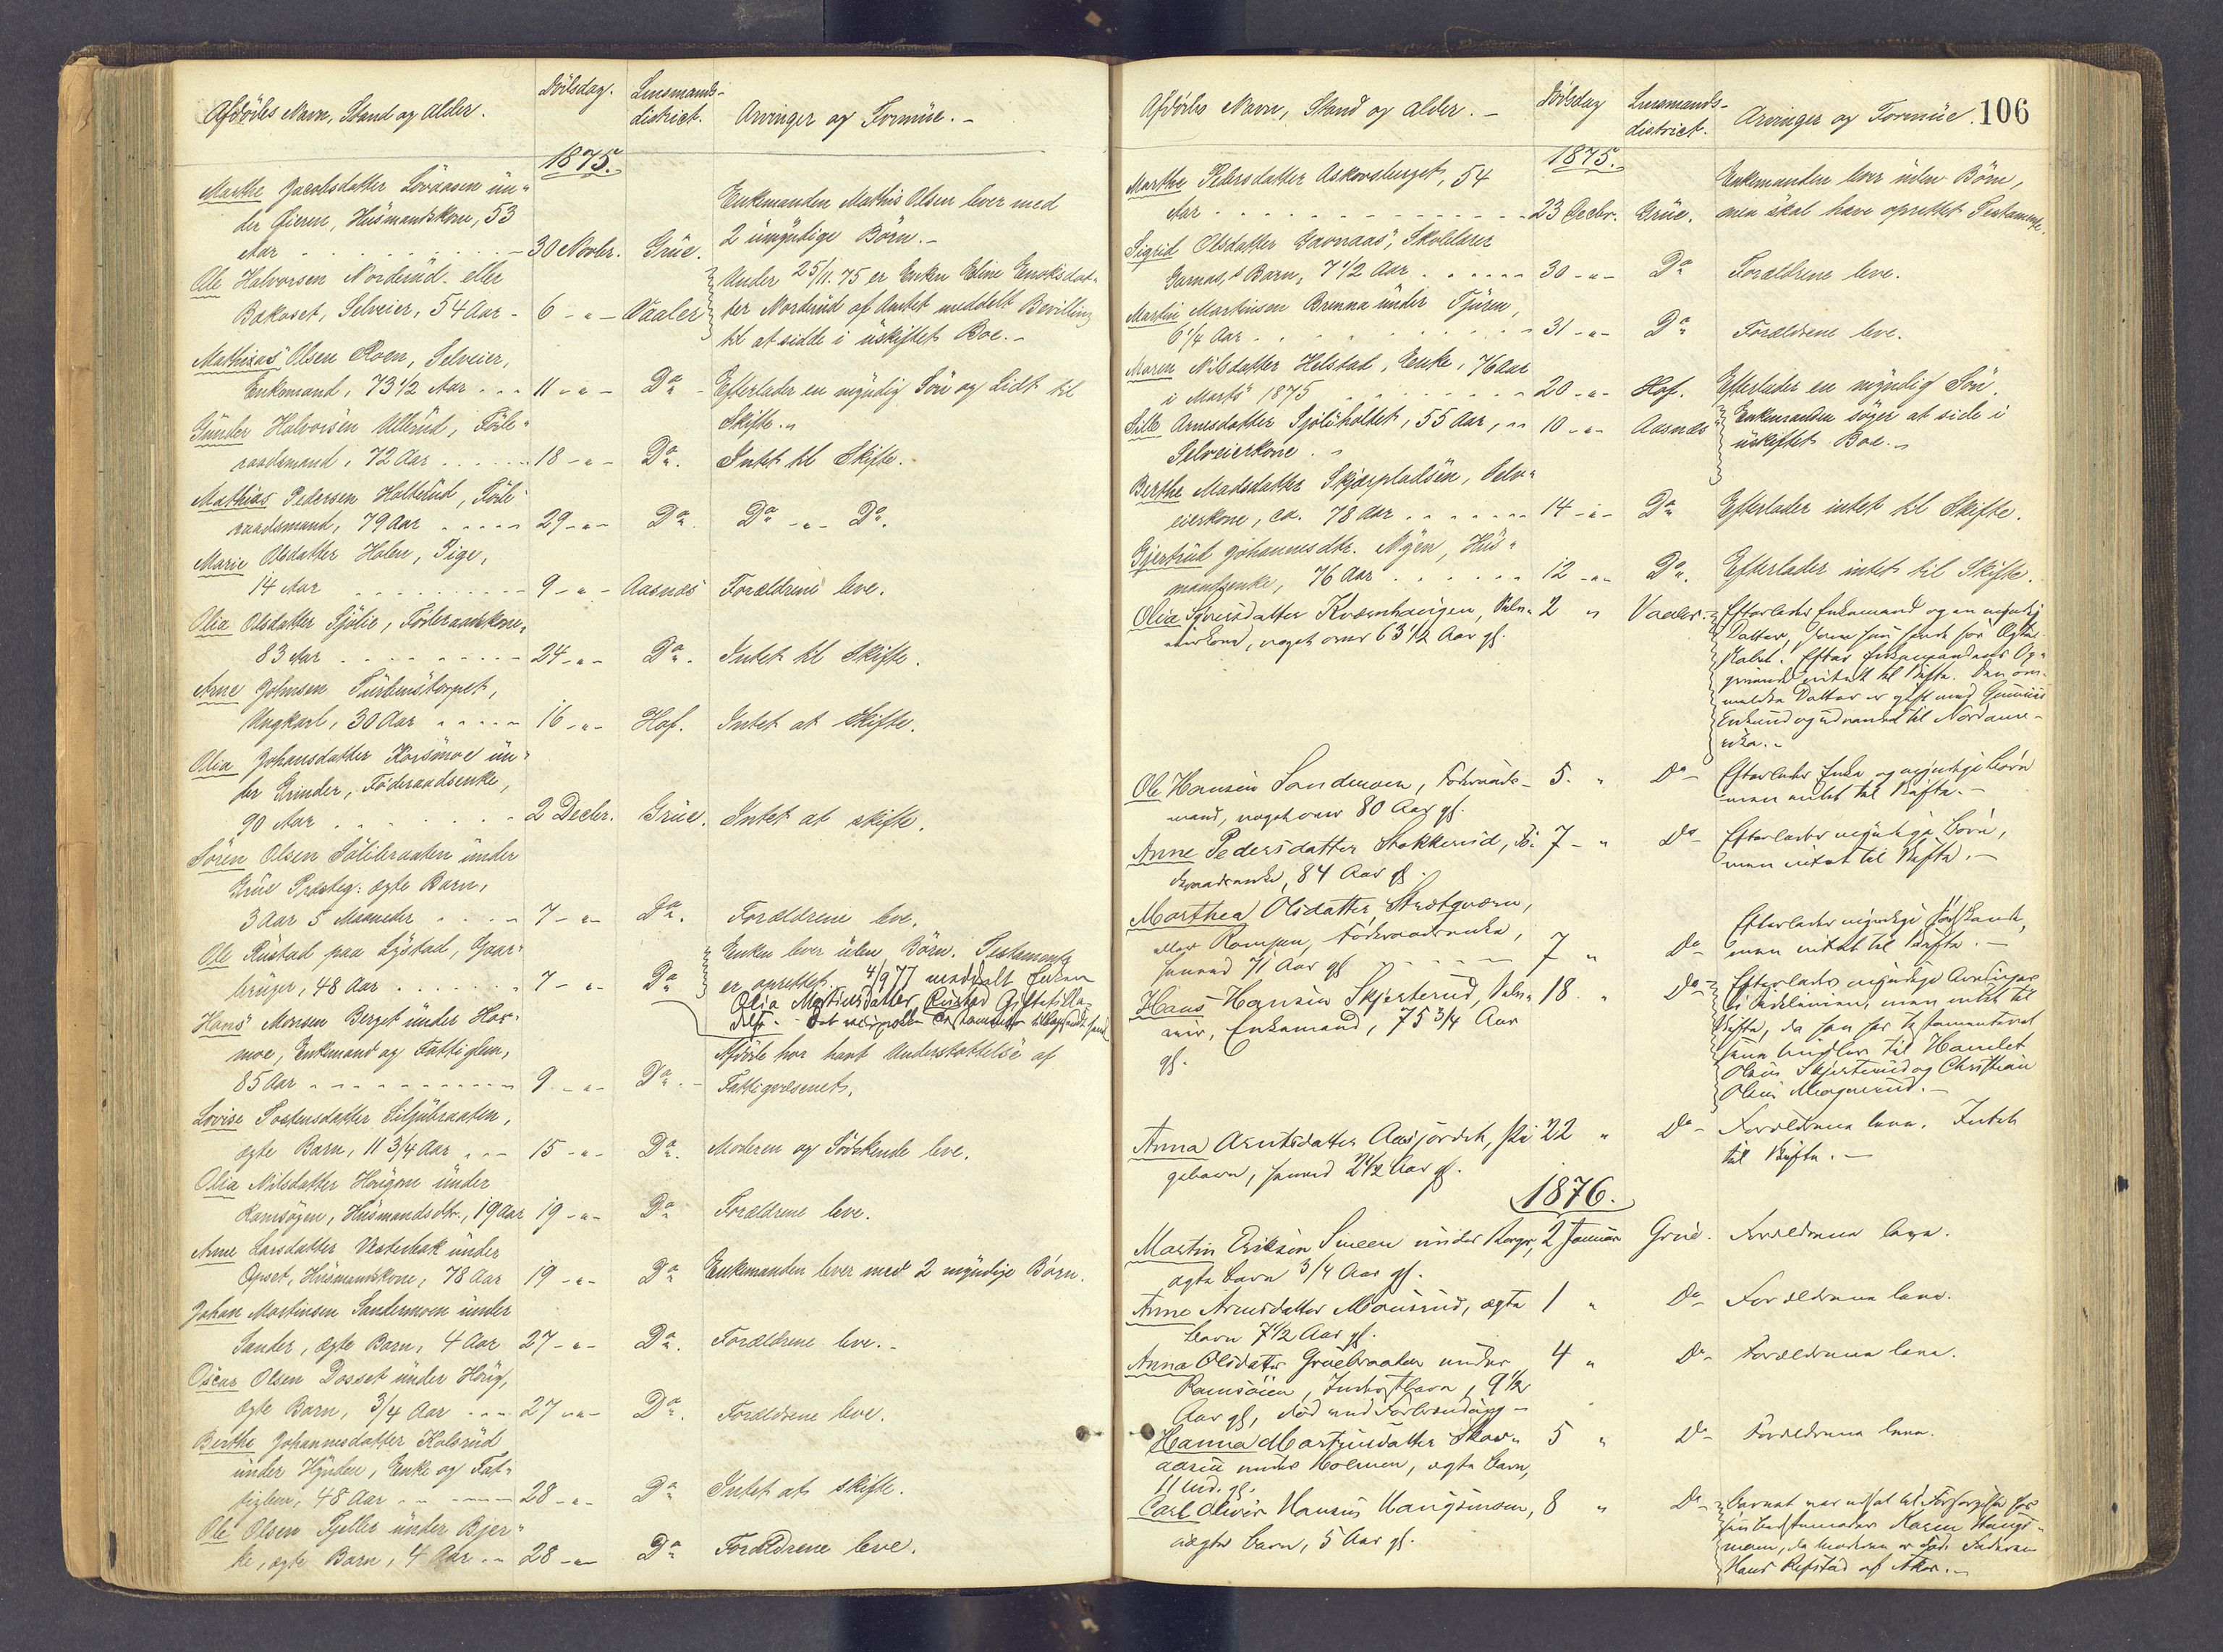 Afdödes Navn, Stand og Alder.
Dödsdag.
Lensmands-
district.
Arvinger og Formue. -
1875.
Marthe Jacobsdatter Lövaasen un-
der Öieren, Husmandskone, 53
Aar - 30 Novbr. Grue.
Enkemanden Mathis Olsen lever med
2 umyndige Børn. -
Ole Halvorsen Norderud eller
Bakaset, Selveier, 54 Aar - 6 - " - Vaaler
Under 25/11. 75 er Enken Eline Enoksdat-
ter Norderud af Amtet meddelt Bevilling
til at sidde i uskiftet Boe. -
Mathias Olsen Moen, Selveier,
Enkemand, 73 1/2 Aar - 11 - " - Do - Efterlader en myndig Søn og Lidt til
Skifte. "
Gunder Halvorsen Ullerud, Föde-
raadsmand, 72 Aar - 18 - " - Do. Intet til Skifte.
Mathias Pedersen Halterud, Föde-
raadsmand, 79 Aar - 29 - " - Do. Do - " - Do.
Marie Olsdatter Holen, Pige,
14 Aar - 9 - " - Aasnes Forældrene leve.
Olia Olsdatter Sjölie, Föderaadskone,
83 Aar - 24 - " - Do. Intet til Skifte.
Arne Johnsen
Ungkarl, 30 Aar - 16 - " - Hof. Intet at Skifte.
Olia Johansdatter Korsmoe un-
der Grinder, Föderaadsenke,
90 Aar - 2 Decbr. Grue. Intet at skifte.
Sören Olsen under
Grue Præsteg: ægte Barn,
3 Aar 5 Maaneder - 7 - " - Do. Forældrene leve.
Ole Rustad paa Lystad, Gaar-
bruger, 48 Aar - 7 - " - Do
Enken lever uden Børn. Testamente
er oprettet. 4/9 77 meddelt Enken
Olia Martinsdatter Rustad
Hans Monsen Berget under Hor-
moe, Enkemand og Fattiglem,
85 Aar - 9 - " - Do. -
Afdöde har havt Understøttelse af
Fattigvæsenet.
Lovise Postensdatter Siljubraaten,
ægte Barn, 11 3/4 Aar - 15 - " - Do. Moderen og Södskende leve.
Olia Nilsdatter Haugom under
Romsögen, Husmandsdtr., 19 Aar 19 - " - Do Forældrene leve.
Anne Larsdatter Vesterbak under
Opset, Husmandskone, 78 Aar 19 - " - Do Enkemanden lever med 2 myndige Børn.
Johan Martinsen Sandermoen under
Sander, ægte Barn, 4 Aar 27 - " - Do. Forældrene leve. -
Oscar Olsen Dosset under Haug,
ægte Barn, 3/4 Aar - 27 - " - Do. Forældrene leve.
Berthe Johannesdatter Kolsrud
under Hynden, Enke og Fat-
tiglem, 48 Aar - 28 - " - Do Intet at skifte.
Ole Olsen Tjeller under Bjer-
ke, ægte Barn, 4 Aar - 28 - " - Do Forældrene leve.
Afdödes Navn, Stand og Alder. -
Dödsdag
Lensmands-
district.
Arvinger og Formue. 106
1875.
Marthe Pedersdatter Askovsberget, 54
Aar - 23 Decbr. Grue.
Enkemanden lever uden Børn,
men skal have oprettet Testamente.
Sigrid Olsdatter Garnaas, Skolelærer
Garnaas's Barn, 7 1/2 Aar - 30 - " - Do Forældrene leve.
Martin Martinsen Brenna under Tjuren,
6 1/4 Aar - 31 - " - Do Forældrene leve.
Maren Nilsdatter Helstad, Enke, 76 Aar
i Marts 1875 - 20 - " - Hof. Efterlader en myndig Søn.
Sille Arnesdatter Sjöliholtet, 55 Aar, 10 - " - Aasnes
Selveierkone. "
Enkemanden søger at side i
uskiftet Boe. -
Berthe Madsdatter Skjærpladsen, Selv-
eierkone, ca. 78 Aar - 14 - " - Do Efterlader intet til Skifte.
Gjertrud Johannesdtr. Myen, Hus-
mandsenke, 76 Aar - 12 - " - Do. Efterlader intet til Skifte.
Olia Syversdatter Kværnhaugen, Selv- 2 " Vaaler. -
eierkone, noget over 63 1/2 Aar gl.
Efterlader Enkemand og en myndig
Datter, som hun havde før Ægte-
skabet. Efter Enkemandens Op-
givende intet til Skifte. Den om-
meldte Datter er gift med
Enkund og udvandret til Nordame-
rika. -
Ole Hansen Sandmoen, Föderaads- 5. " Do -
mand, noget over 80 Aar gl.
Efterlader Enke og myndige Børn
men intet til Skifte. -
Anne Pedersdatter Stokkerud, Fö- 7 - " Do -
deraadsenke, 84 Aar gl.
Efterlader myndige Børn,
men intet til Skifte. -
Marthea Olsdatter Strætquern,
eller Ramsøen, Föderaadsenke,
henved 71 Aar gl - 7 " Do
Efterlader myndige Sødskende,
men intet til Skifte. -
Hans Hansen Skjesterud, Selv- 18. " Do -
eier, Enkemand, 75 3/4 Aar
gl.
Efterlader myndige Arvinger
i Sidelinien, men intet til
Skifte, da han har testamenteret
sine Midler til Hamlet
Olsen Skjesterud og Christian
Olsen Mogenrud. -
Anna Arntsdatter Aasjordet, 22 " Do -
gebarn, henved 2 1/2 Aar gl.
Forældrene leve. Intet
til Skifte. -
1876.
Martin Eriksen Sneen under Berger, 2 Januar Grue. Forældrene leve.
ægte Barn 3/4 Aar gl.
Anne Arnesdatter Monsrud, ægte 1 " Do - Forældrene leve.
Barn 7 1/2 Aar gl.
Anna Olsdatter Gruebraaten under 4 " Do - Forældrene leve.
Ramsøien, Inderstbarn, 9 1/2
Aar gl, död ved Forbrænding -
Hanna Martinsdatter Skov- 5 " Do - Forældrene leve.
aasen under Holmen, ægte Barn,
11 Md. gl.
Carl Oliver Hansen Haugsmoen, 8 " Do -
uægte Barn, 5 Aar gl.
Barnet var udsat til Forsørgelse hos
sin Bedstemoder Karen Haugs-
moen, da Moderen er død. Faderen
Hans Refstad af